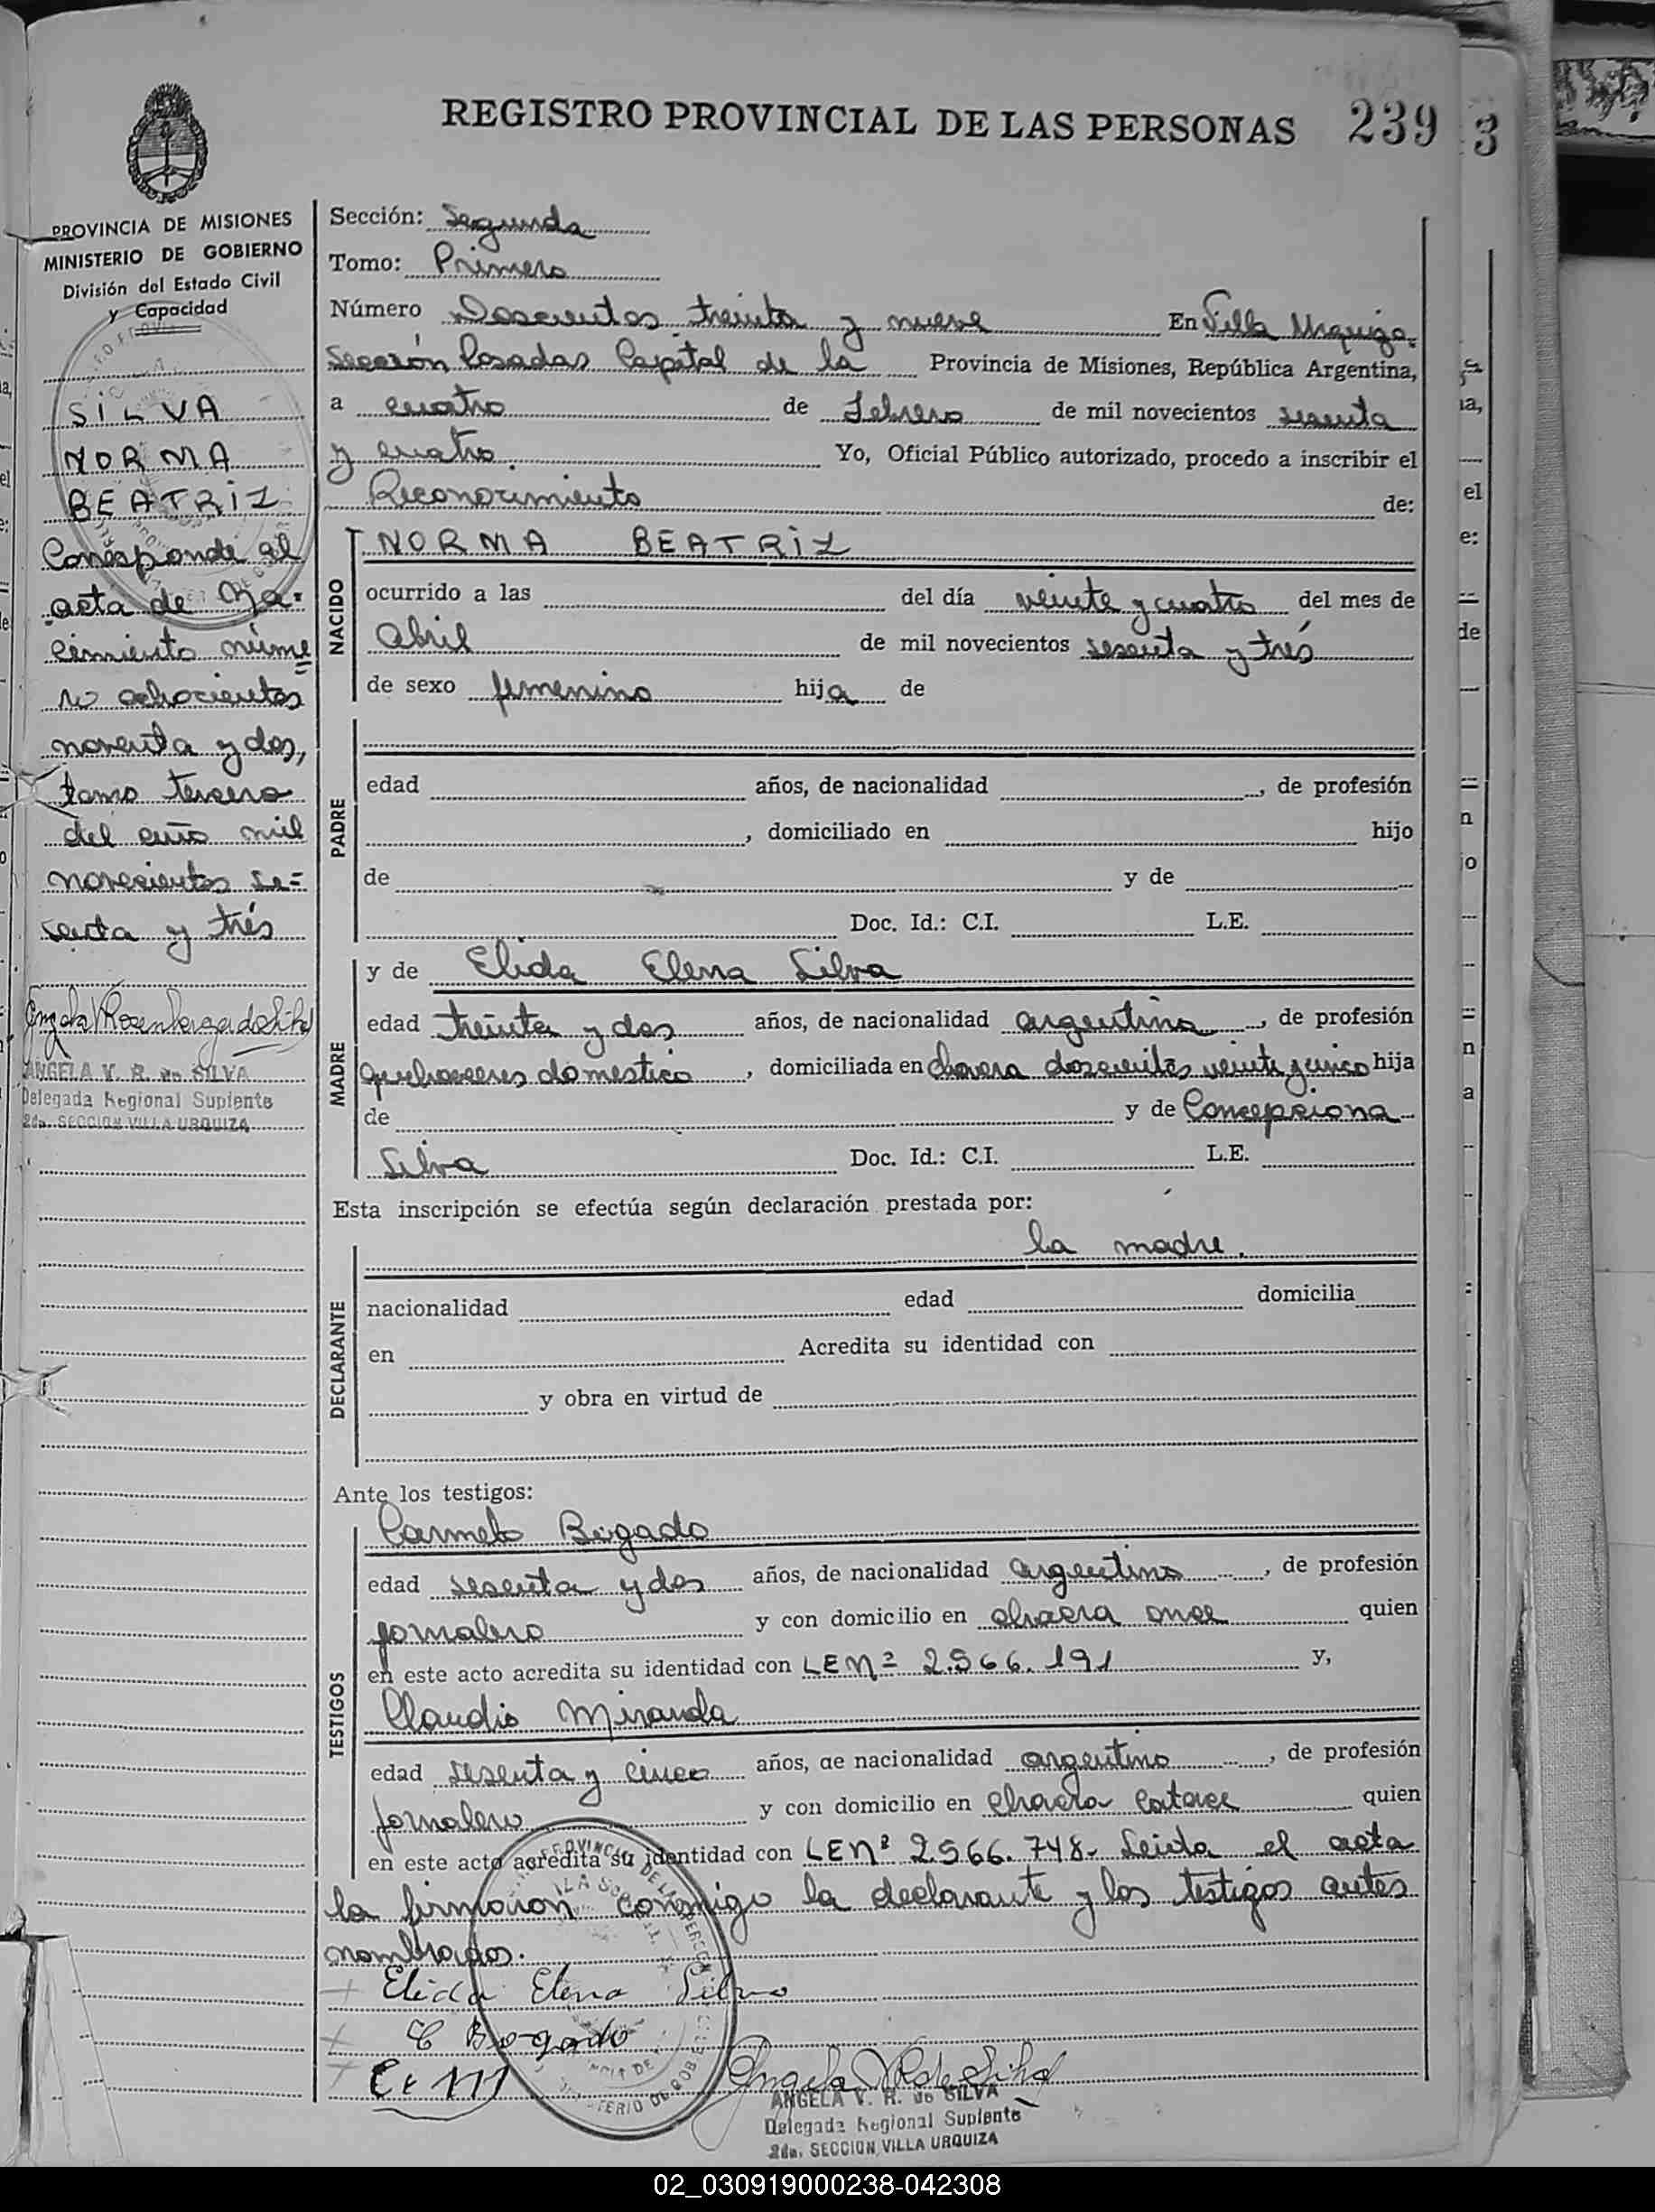 REGISTRO PROVINCIAL DE LAS PERSONAS 239 3
PROVINCIA DE MISIONES
MINISTERIO DE GOBIERNO
División del Estado Civil
y Capacidad
SILVA
NORMA
BEATRIZ
Corresponde al
acta de Na-
cimiento núme=
ro ochocientos
noventa y dos,
tomo tercero
del año mil
novecientos se=
senta y trés
ANGELA V. R. de SILVA
Delegada Regional Suplente
2da. SECCION VILLA URQUIZA
Sección: Segunda
Tomo: Primero
Número Doscientos treinta y nueve En Villa Urquiza.
Sección Posadas Capital de la Provincia de Misiones, República Argentina,
a cuatro de febrero de mil novecientos sesenta
y cuatro. Yo, Oficial Público autorizado, procedo a inscribir el
Reconocimiento de:
NACIDO
NORMA BEATRIZ
ocurrido a las del día veinte y cuatro del mes de
Abril de mil novecientos sesenta y trés
de sexo femenino hija de
PADRE
edad años, de nacionalidad , de profesión
, domiciliado en hijo
de y de
Doc. Id.: C.I. L.E.
MADRE
y de Elida Elena Silva
edad treinta y dos años, de nacionalidad argentina, de profesión
quehaceres domestico, domiciliada en chacra doscientos veinte y cinco hija
de y de Concepciona
Silva Doc. Id.: C.I. L.E.
Esta inscripción se efectúa según declaración prestada por:
la madre.
DECLARANTE
nacionalidad edad domicilia
en Acredita su identidad con
y obra en virtud de
Ante los testigos:
TESTIGOS
Carmelo Bogado
edad sesenta y dos años, de nacionalidad argentino, de profesión
jornalero y con domicilio en chacra once quien
en este acto acredita su identidad con LE Nº 2.566.191 y,
Claudio Miranda
edad sesenta y cinco años, de nacionalidad argentino, de profesión
jornalero y con domicilio en chacra catorce quien
en este acto acredita su identidad con LE Nº 2.566.748. Leida el acta
la firmaron conmigo la declarante y los testigos antes
nombrados.
Elida Elena Silva
C Bogado
ANGELA V. R. de SILVA
Delegada Regional Suplente
2da. SECCION VILLA URQUIZA
02_030919000238-042308